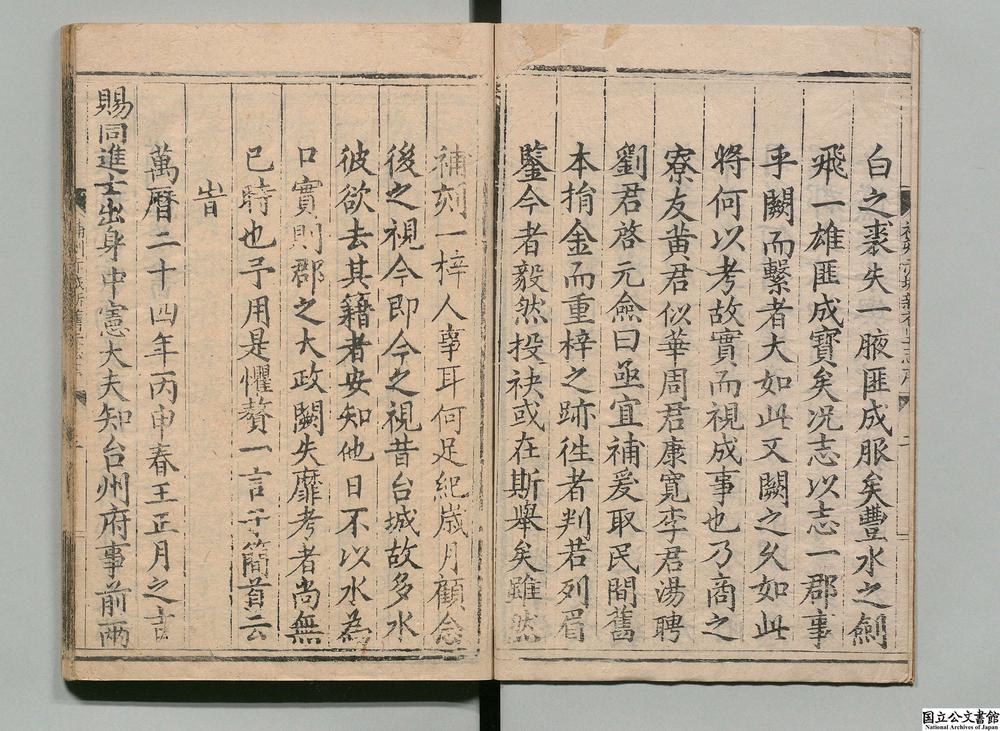 白之裘失一腋匪成服矣豐水之劍
飛一雄匪成寶矣况志以志一郡事
乎闕而繫者大如此又闕之久如此
將何以考故實而視成事也乃商之
寮友黃君似華周君康寬李君湯聘
劉君啓元僉曰亟宜補爰取民間舊
本捐金而重梓之跡徃者判若列眉
鑒今者毅然投袂或在斯舉矣雖然
補刻一梓人事耳何足紀歲月顧念
後之視今即今之視昔台城故多水
彼欲去其籍者安知他日不以水為
口實則郡之大政闕失靡考者尚無
已時也予用是懼贅一言于簡首云
旹
萬曆二十四年丙申春王正月之吉
賜同進士出身中憲大夫知台州府事前兩
国立公文書館
National Archives of Japan